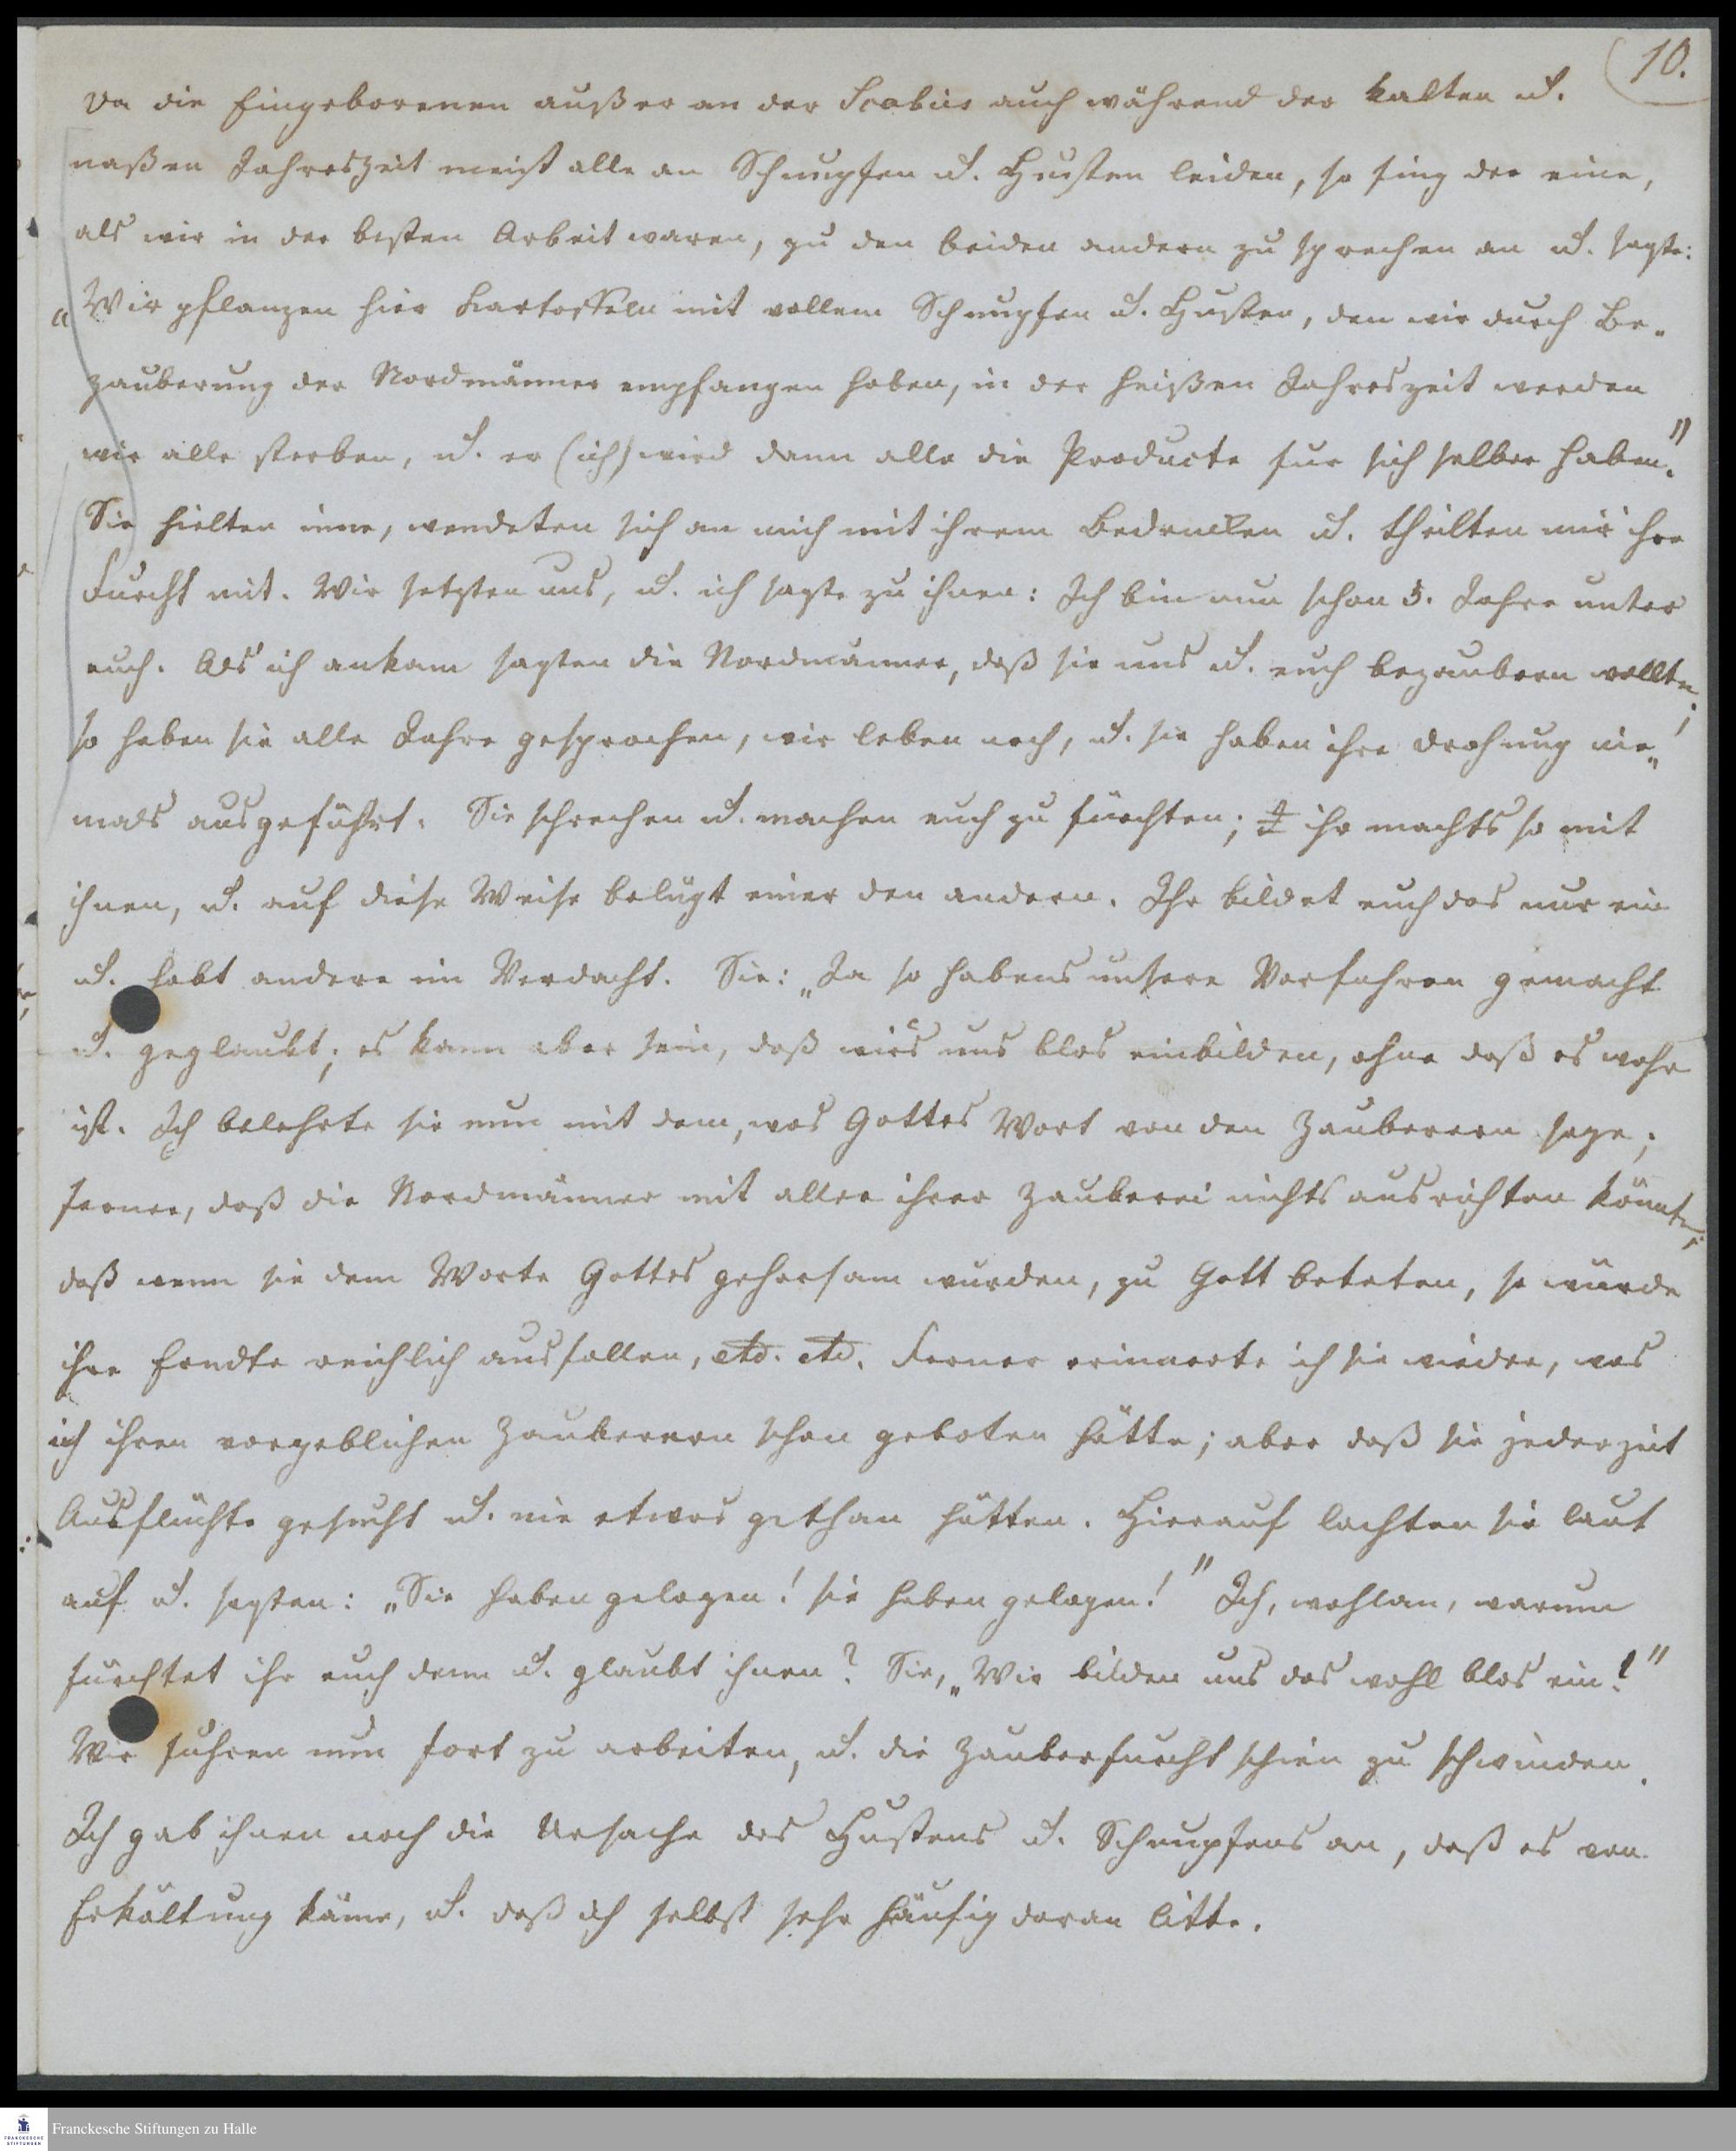 10.
Da die Eingeborenen außer an der Scabies auch während der kalten u.
naßen Jahreszeit meist alle an Schnupfen u. Husten leiden, so fing der eine,
als wir in der besten Arbeit waren, zu den beiden andern zu sprechen an u. sagte:
„Wir pflanzen hier Kartoffeln mit vollem Schnupfen u. Husten, den wir durch Be-
zauberung der Nordmänner empfangen haben, in der heißen Jahreszeit werden
wir alle sterben, u. er (ich) wird dann alle die Producte fur sich selber haben."
Sie hielten inne, wendeten sich an mich mit ihrem Bedencken u. theilten mir ihre
Furcht mit. Wir setzten uns, u. ich sagte zu ihnen: Ich bin nun schon 5. Jahre unter
euch. Als ich ankam sagten die Nordmänner, daß sie uns u. euch bezaubern wollten;
so haben sie alle Jahre gesprochen, wir leben noch, u. sie haben ihre Drohung nie-
mals ausgeführt. Sie schrecken u. machen euch zu fürchten; & ihr machts so mit
ihnen, u. auf diese Weise belügt einer den andern. Ihr bildet euch das nur ein
u. habt andere im Verdacht. Sie: „Ja so habens unsere Vorfahren gemacht
u. geglaubt; es kann aber sein, daß wirs uns blos einbilden, ohne daß es wahr
ist. Ich belehrte sie nun mit dem, was Gottes Wort von den Zauberern sage;
ferner, daß die Nordmänner mit aller ihrer Zauberei nichts ausrichten könnten;
daß wenn sie dem Worte Gottes gehorsam wurden, zu Gott beteten, so würde
ihre Erndte reichlich ausfallen, etc. etc. Ferner erinnerte ich sie wieder, was
ich ihren vorgeblichen Zauberern schon geboten hätte; aber daß sie jederzeit
Ausflüchte gesucht u. nie etwas gethan hätten. Hierauf lachten sie laut
auf u. sagten: „Sie haben gelogen! sie haben gelogen!" Ich, wohlan, warum
fürchtet ihr euch denn u. glaubt ihnen? Sie, „Wir bilden uns das wohl blos ein!"
Wir fuhren nun fort zu arbeiten, u. die Zauberfurcht schien zu schwinden.
Ich gab ihnen noch die Ursache des Hustens u. Schnupfens an, daß es von
Erkältung käme, u. daß ich selbst sehr häufig daran litte.
Franckesche Stiftungen zu Halle
FRANCKESCHE
STIFTUNGEN